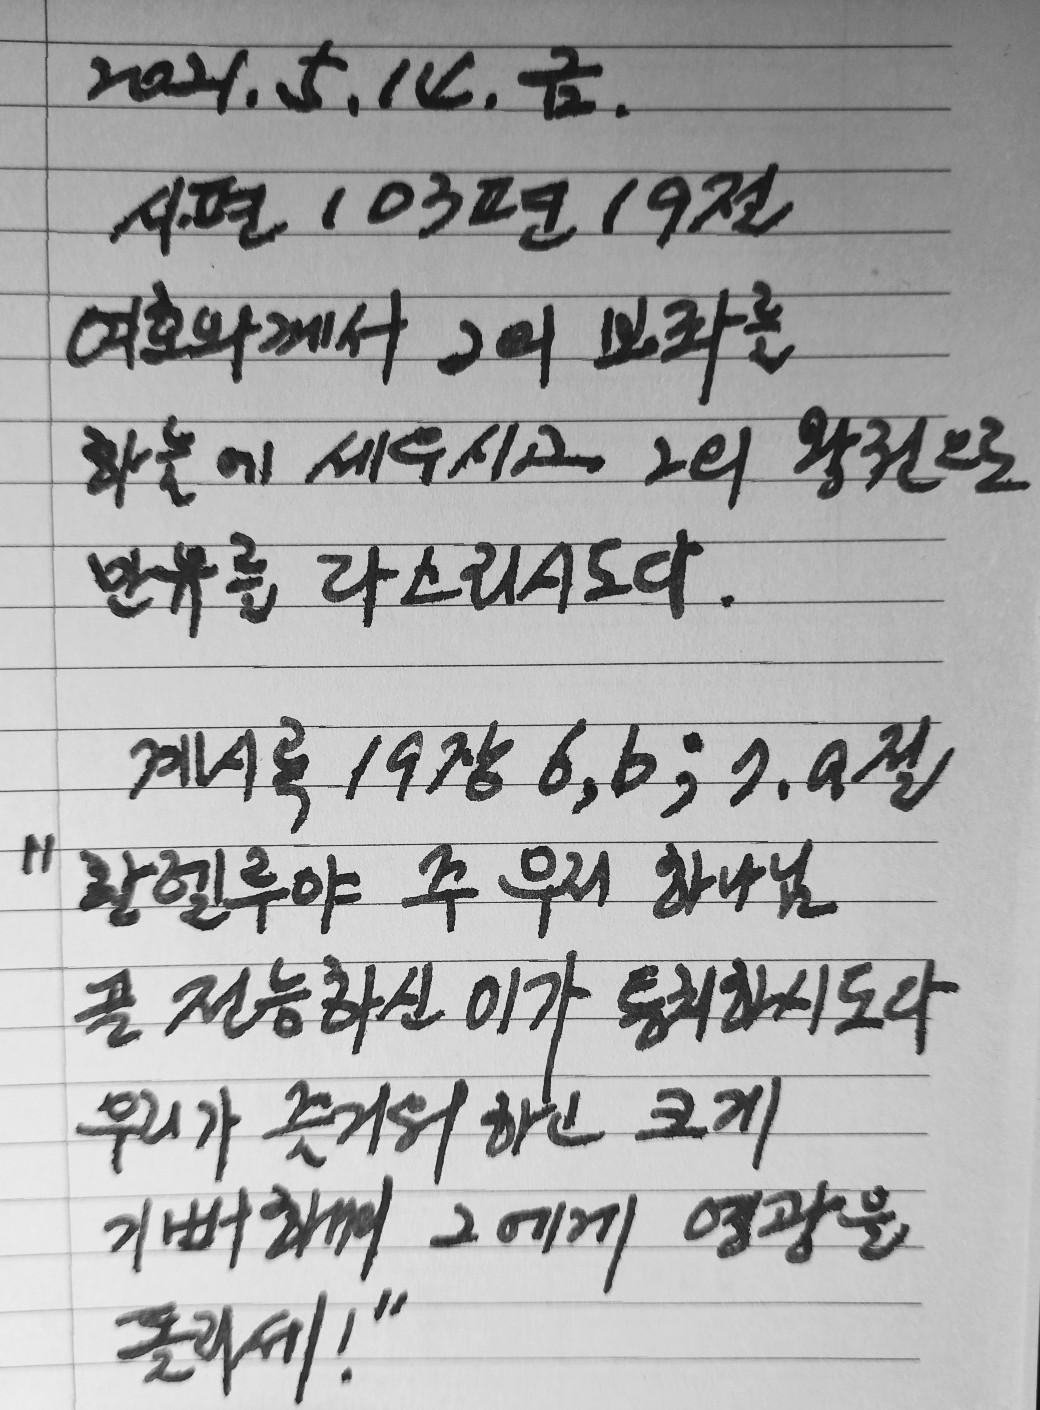 2021. 5. 14. 금.
시편 103편 19절
여호와께서 그의 보좌를
하늘에 세우시고 그의 왕권으로
만유를 다스리시도다.
계시록 19장 6,b; 7.a절
"할렐루야 주 우리 하나님
곧 전능하신 이가 통치하시도다
우리가 즐거워 하고 크게
기뻐함께 그에게 영광을
돌리세!"